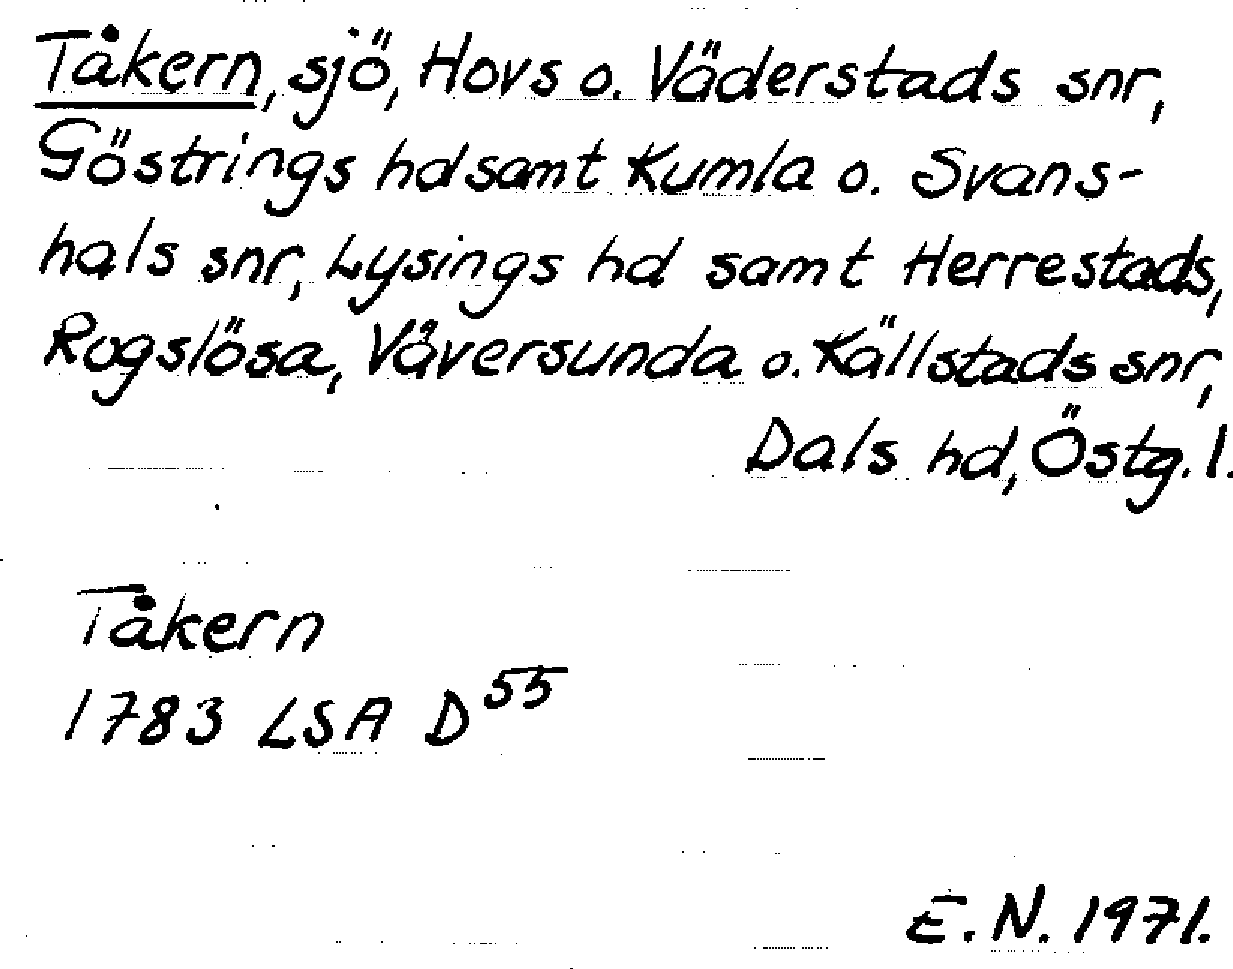 Tåkern, sjö, Hovs o. Väderstads snr,
Göstrings hd samt Kumla o. Svans-
hals snr, Lysings hd samt Herrestads,
Rogslösa, Väversunda o. Källstads snr,
Dals hd, Östg. l.
Tåkern
1783 LSA D 55
E.N. 1971.